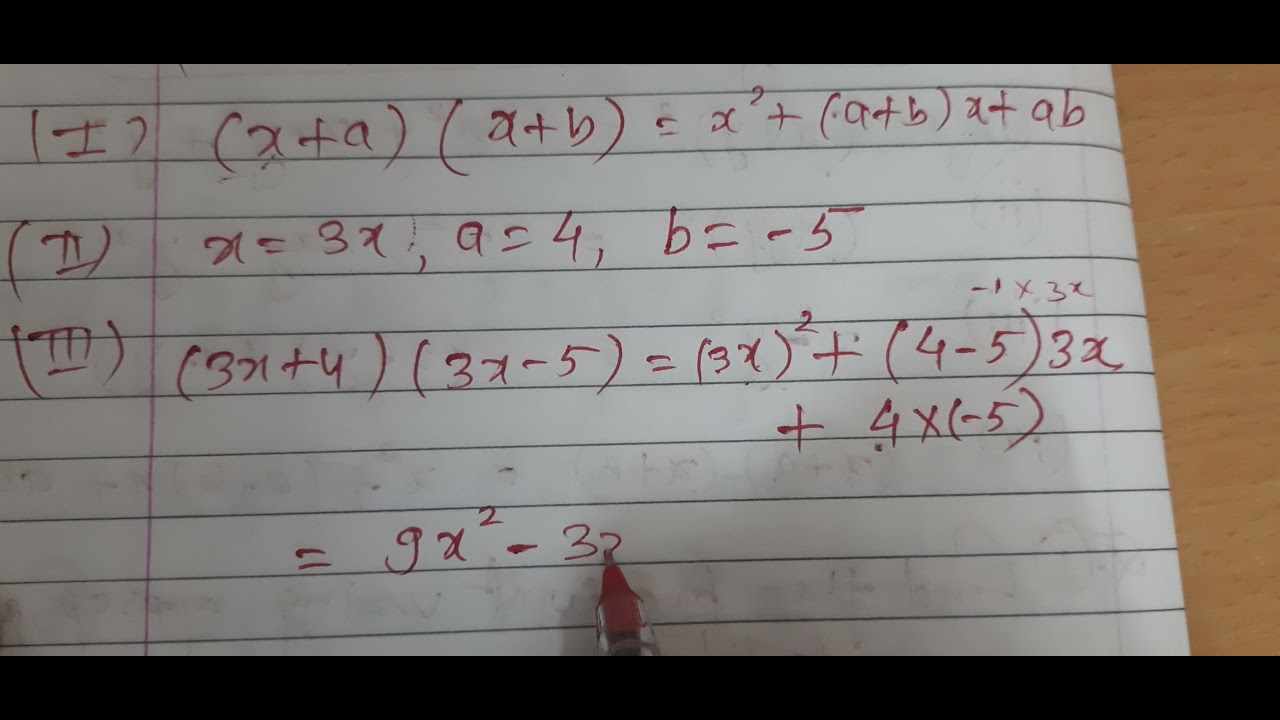 (I) (x+a) (x+b) = x² + (a+b) x + ab
(II) x = 3x, a = 4, b = -5
-1 × 3x
(III) (3x+4) (3x-5) = (3x)² + (4-5) 3x
+ 4×(-5)
= 9x² - 3x